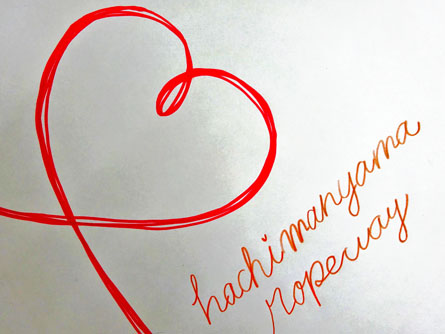 hachimanyama
ropeway